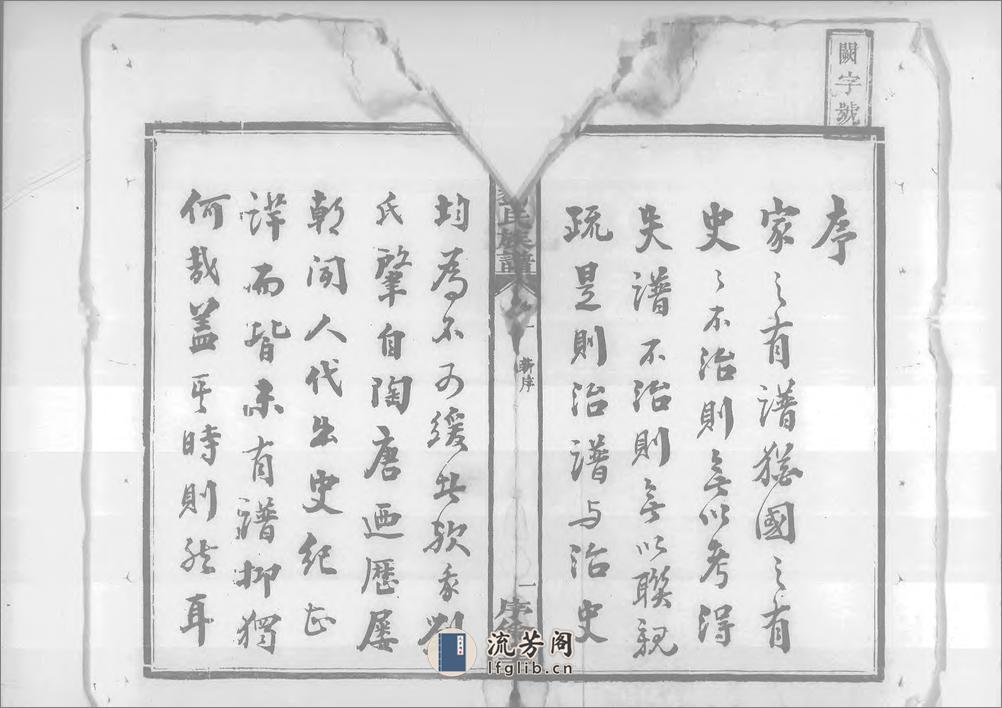 闕字號
序
家之有譜猶國之有
史〻不治則無以考得
失譜不治則無以聯親
疏是則治譜与治史
氏族譜
新序
一
序
均為不可緩也歟我劉
氏肇自陶唐迺歷屡
朝聞人代出史紀正
詳而皆未有譜抑獨
何哉蓋其時則然耳
流芳阁
lfglib.cn